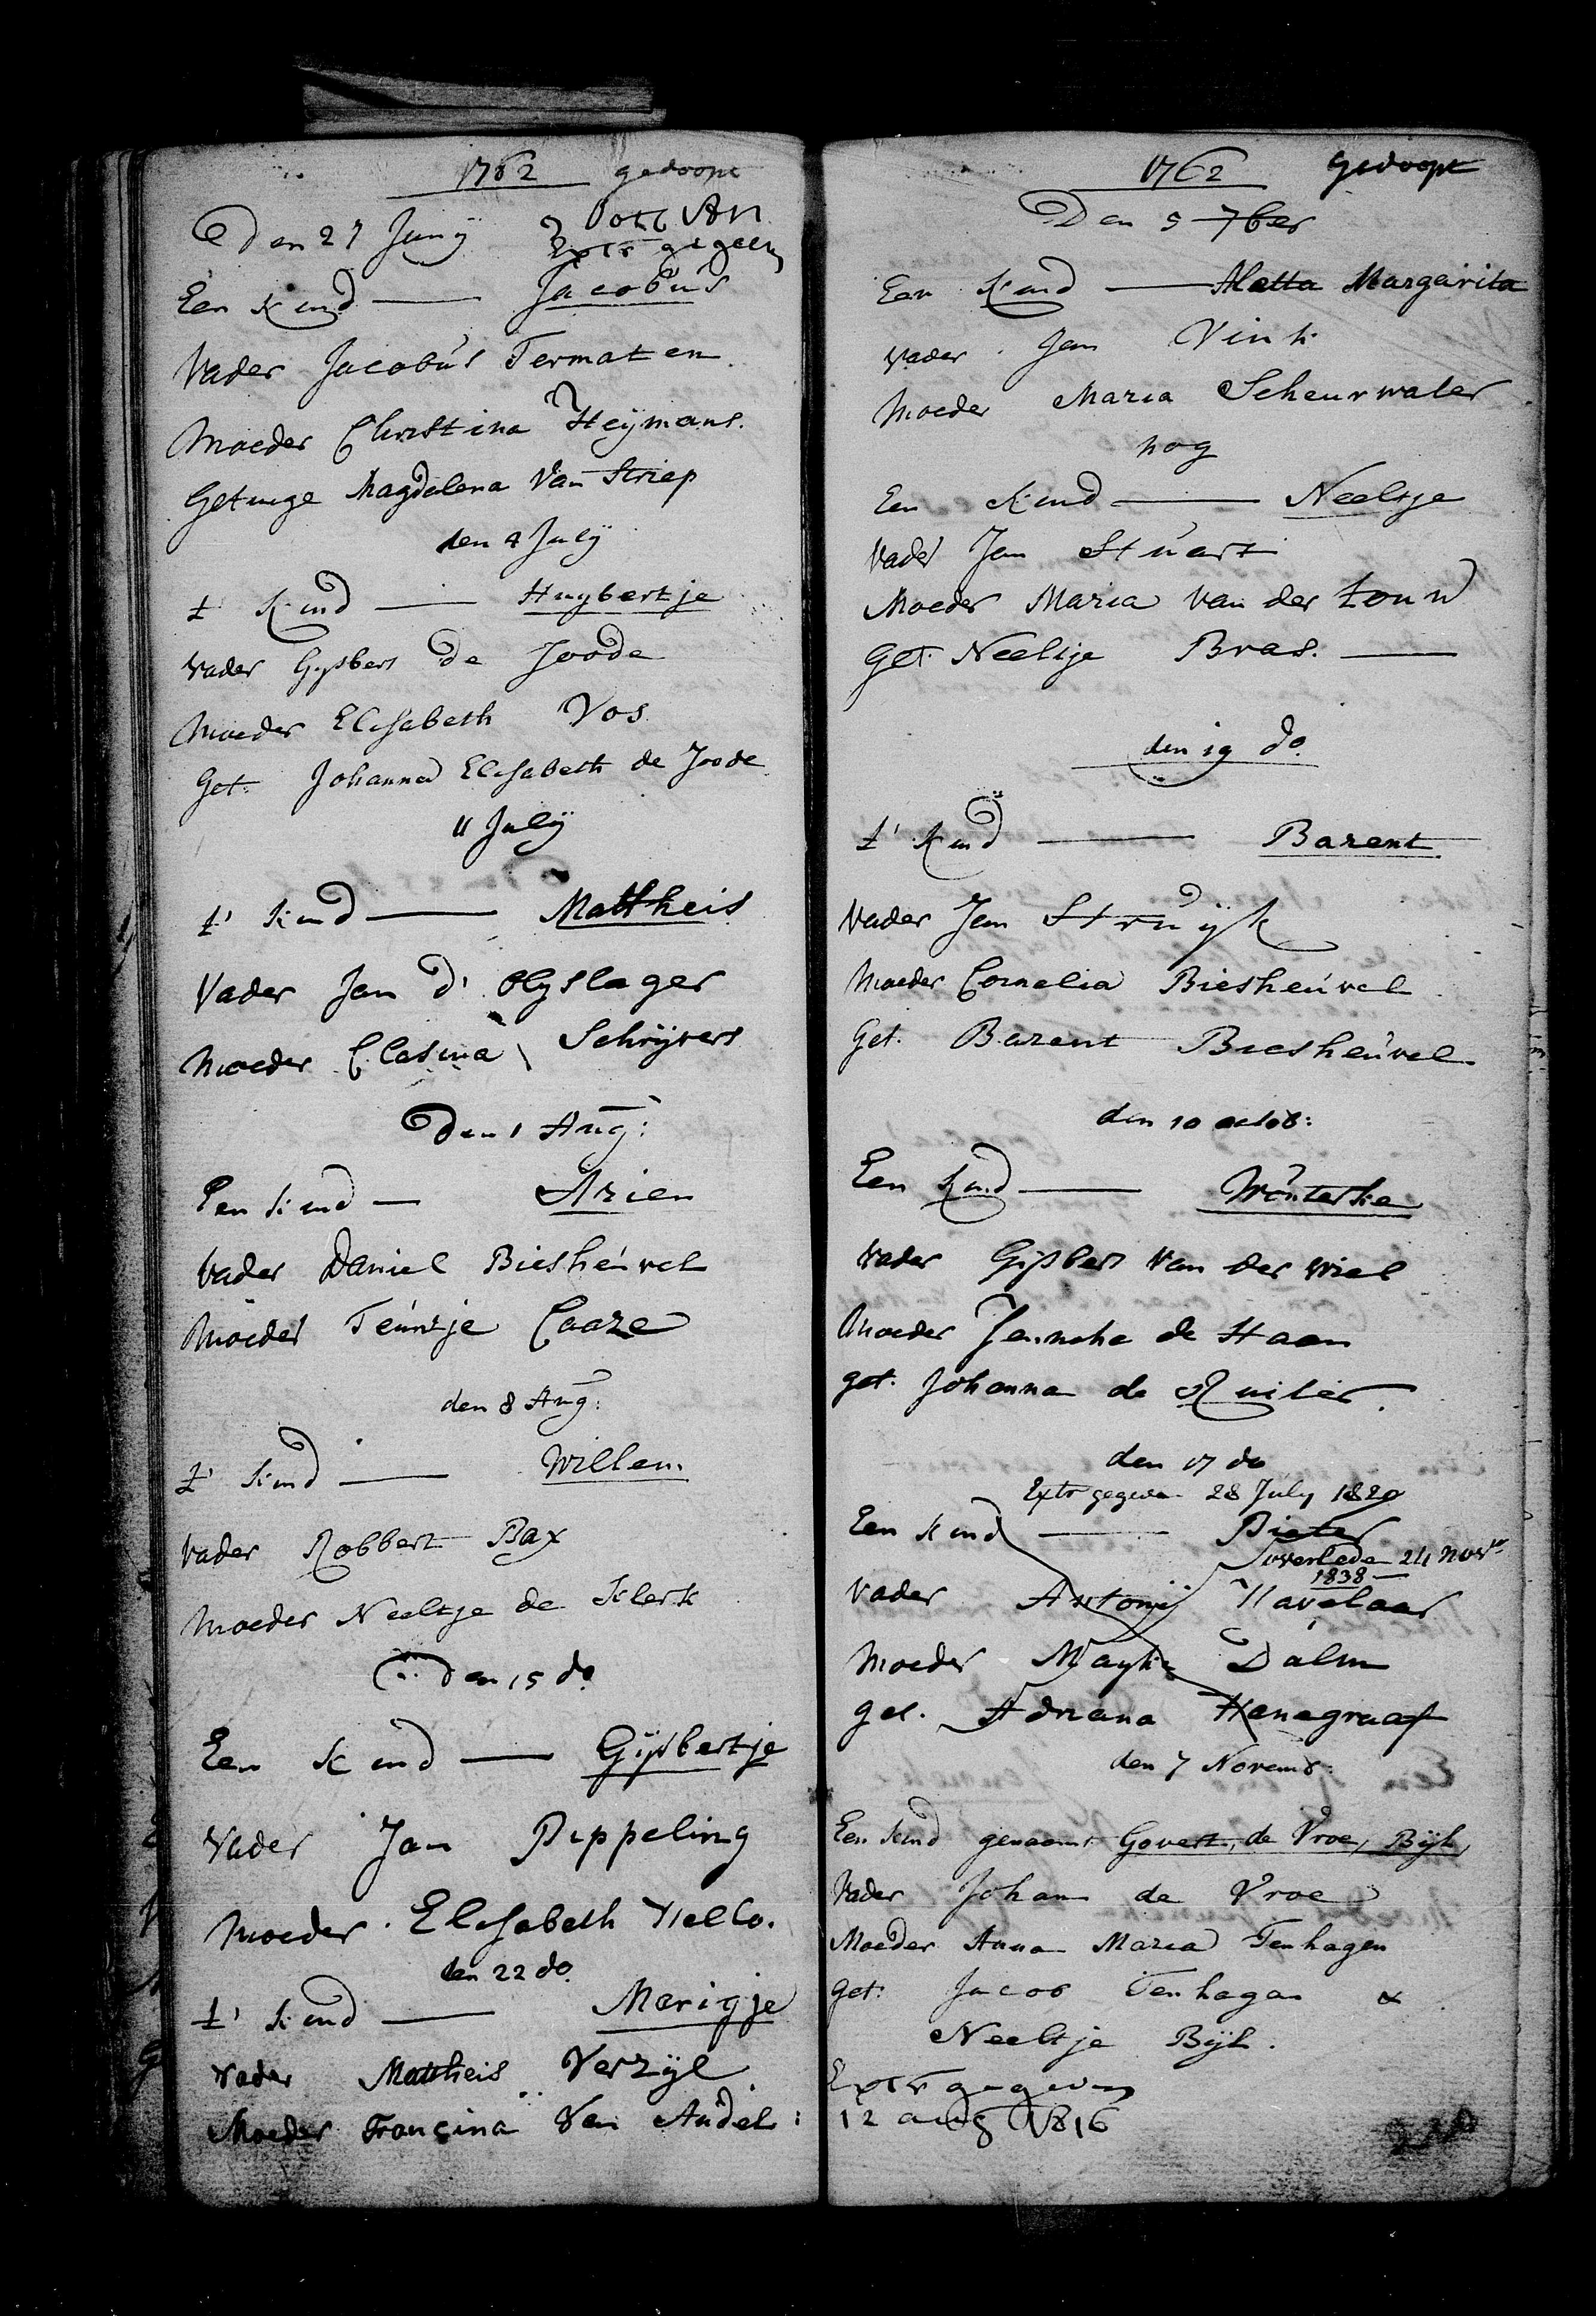 1762 gedoopt
Den 27 Junij
Extr gegeven
Een Kind — Jacobus
Vader Jacobus Termaten
Moeder Christina Heijmans.
Getuige Magdelena Van Striep
den 4 Julij
t' Kind — Huybertje
Vader Gysbert de Joode
Moeder Elisabeth Vos
Get. Johanna Elisabeth de Joode
11 Julij
t' Kind — Mattheis
Vader Jan d' Olyslager
Moeder Clasina Schrijvers
Den 1 Aug:
Een Kind — Arien
Vader Daniel Biesheúvel
Moeder Teúntje Caaze
den 8 Aug:
t' Kind — Willem.
Vader Robbert Bax
Moeder Neeltje de Klerk
Den 15 do
Een Kind — Gijsbertje
Vader Jan Pippeling
Moeder Elisabeth
den 22 do
t' Kind — Merigje
Vader Mattheis Verzijl
Moeder Francina Van Andel:
1762 Gedoopt
Den 5 7ber
Een Kind — Aletta Margarita
Vader Jan Vink
Moeder Maria Scheurwater
nog
Een Kind — Neeltje
Vader Jan Stúart
Moeder Maria van der Louw
Get. Neeltje Bras. —
den 19 do
t' Kind — Barent
Vader Jan Strúijk
Moeder Cornelia Biesheúvel
Get. Barent Biesheúvel
den 10 octob:
Een Kind — Wouterke
Vader Gijsbert Van der Wiel
Moeder Jenneke de Haan
get. Johanna de Ruiter.
den 17 do
Extr gegeven 28 July 1820
Een Kind — Pieter
overleden 24 Novr
1838 —
Vader Antonij Havelaar
Moeder Mayke Dalm
get. Adriana Hanegraaf
den 7 Novemb:
Een Kind genaamt Govert, de Vroe, Bijl,
Vader Johan de Vroe
Moeder Anna Maria Tenhagen
Get: Jacob Tenhagen &
Neeltje Bijl.
Extr gegeven
12 aug 1816